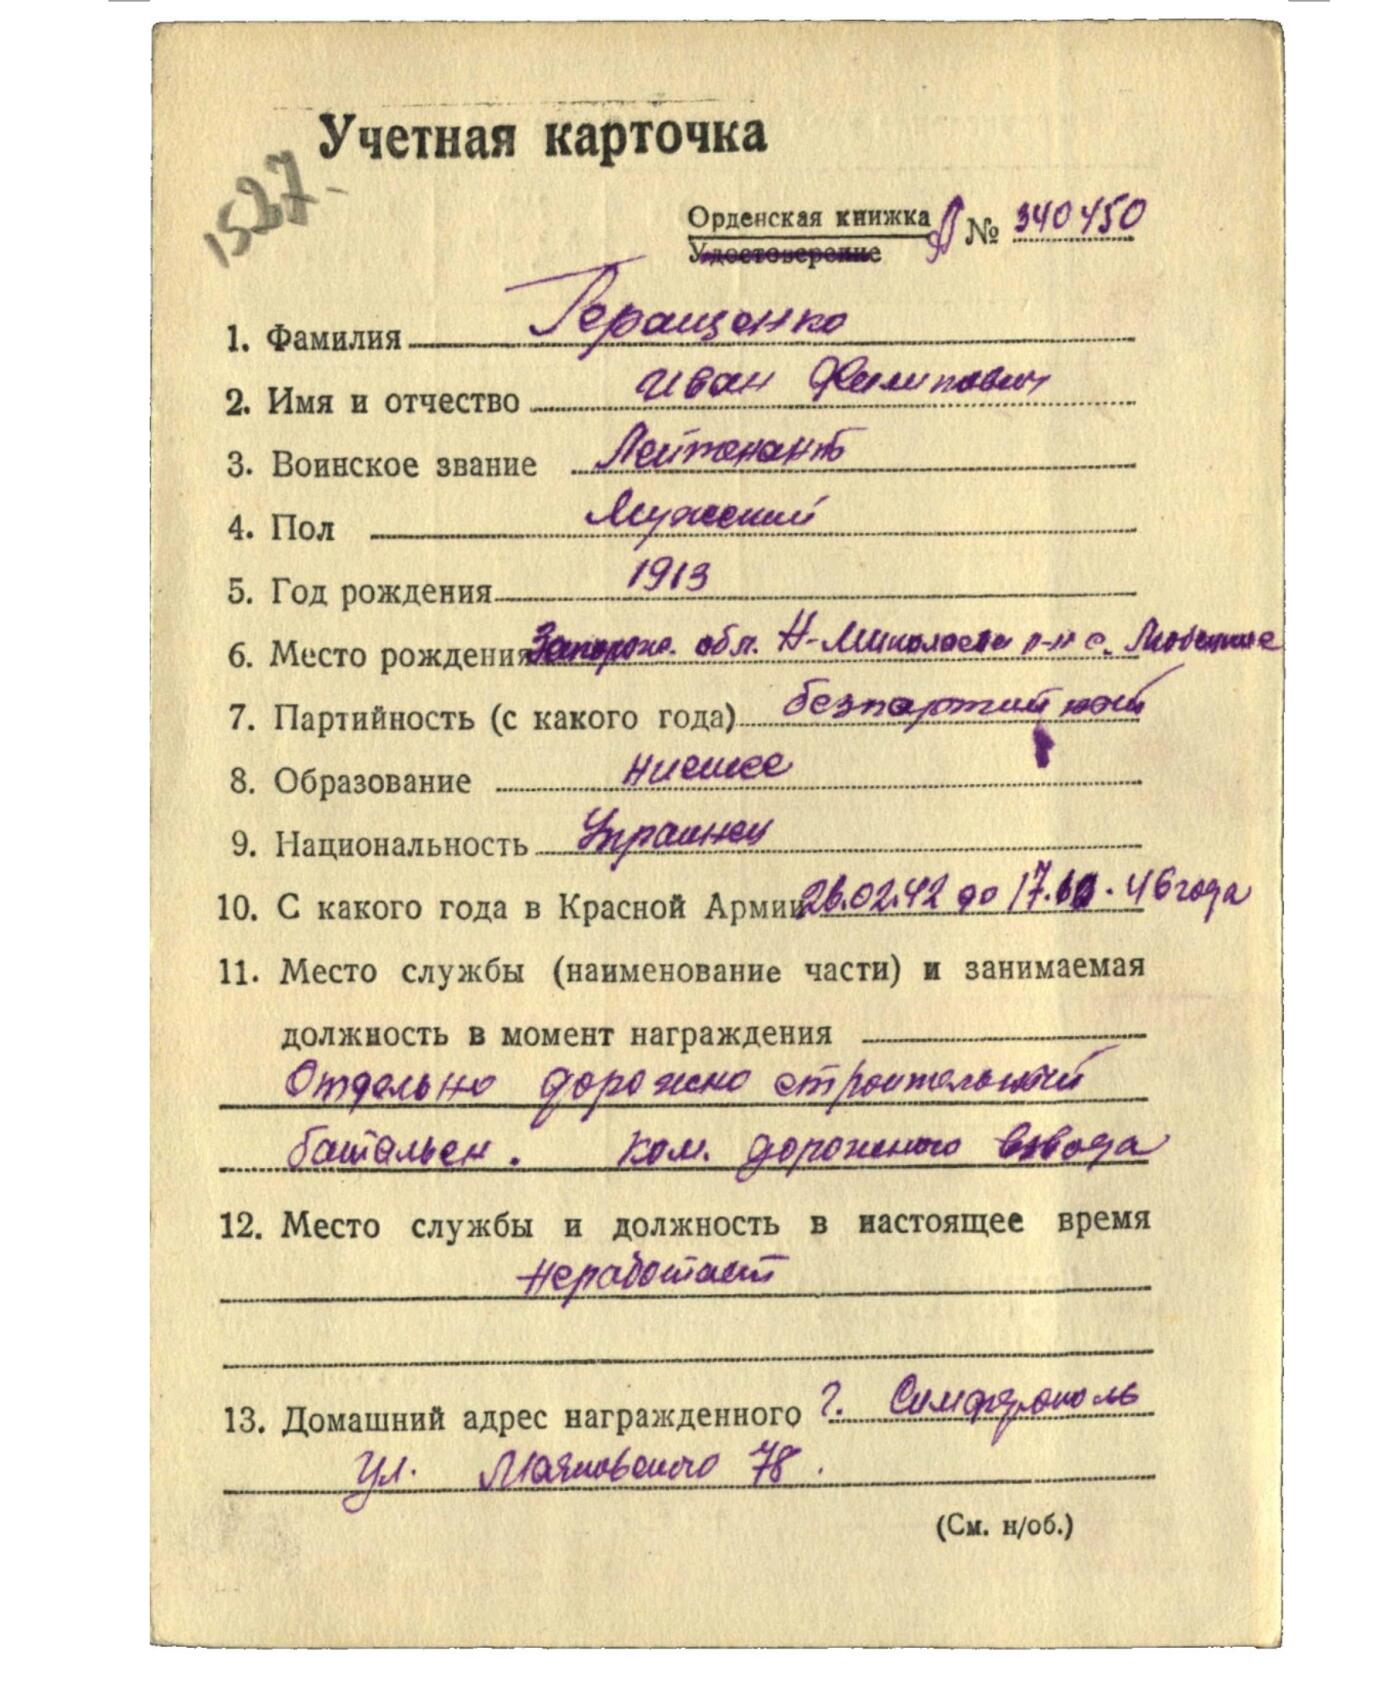 Учетная карточка
1527
Орденская книжка А № 340450
Удостоверение
1. Фамилия Геращенко
2. Имя и отчество Иван Филипович
3. Воинское звание Лейтенант
4. Пол Мужский
5. Год рождения 1913
6. Место рождения Запорож. обл. Н-Миколаевк р-н с. Любецкое
7. Партийность (с какого года) безпартийный
8. Образование нисшее
9. Национальность Украинец
10. С какого года в Красной Армии 26.02.42 до 17. 46 года
11. Место службы (наименование части) и занимаемая
должность в момент награждения
Отдельно дорожно строительный
батальен. ком. дорожного взвода
12. Место службы и должность в настоящее время
неработает
13. Домашний адрес награжденного г. Симферополь
ул. Маяковского 78.
(См. н/об.)